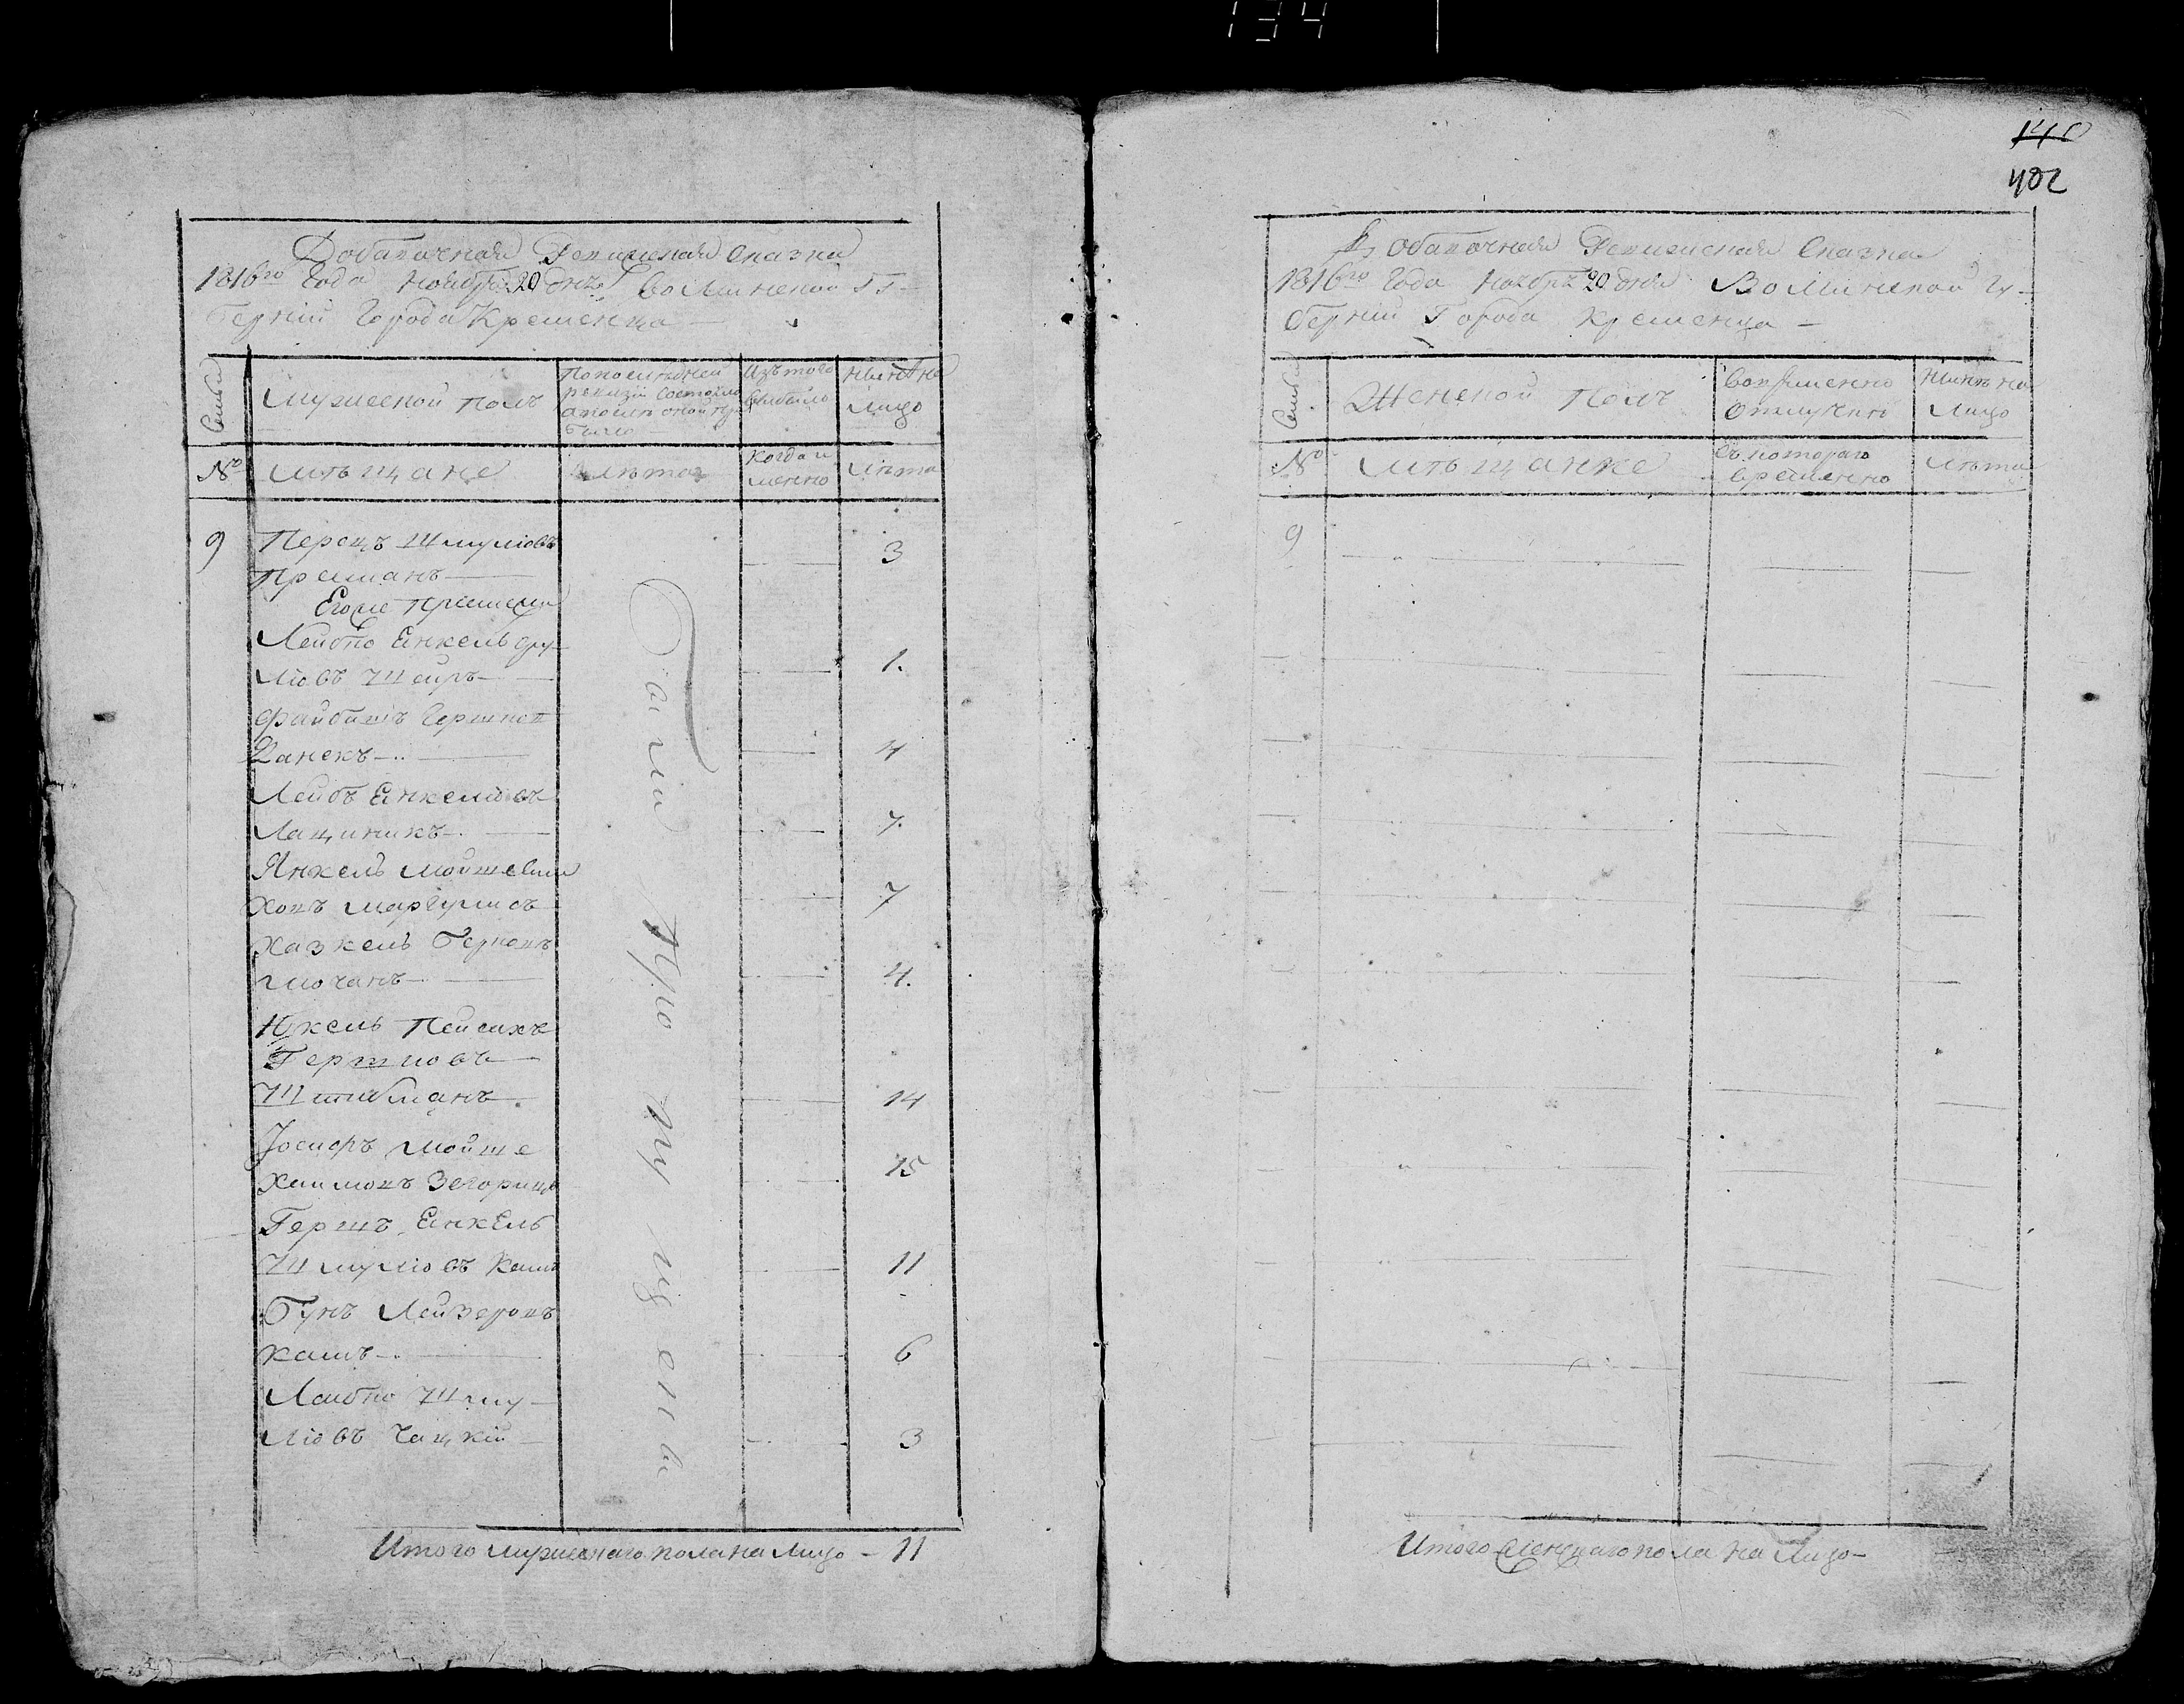 134
Добавочная Ревизская Сказка
1816го Года Ноября 20 дня Волинской Гу-
берний Города Кременца
Семьи
мужеской полъ
По последней
ревизіи состояло
а после оной пр
было
Изъ того
выбыло
Нине на
лицо
№
мѣщане
лѣта
когда и
менно
лѣта
9
Перецъ Шмуліовъ
3
Прешманъ
Его же
Лейбко Енкель Сру-
ліовъ Шейръ
1.
Файбишъ Гершков
Ланекъ
4
Лейбъ Енкеліовъ
Лащиникъ
7.
Янкель Мойшеви
Ховъ Маргулисъ
7
Хазкель Берковъ
Мочанъ
4.
Нукель Пейсихъ
Гершковъ
Штивманъ
14
Іосифъ Мойше
Хаимовъ Зегорищъ
15
Гершъ Енкель
Шмуліовъ Кацъ
11
Бунъ Лейзеровъ
Кацъ
6
Лейбко Шму-
ліовъ Чацкій
3
Были пропущены
Итого мужескаго пола на лицо - 11
140
402
Добавочная Ревизская Сказка
1816го Года Ноября 20 дня Волинской Гу-
берний Города Кременца
Семьи
Женской полъ
Во временно
отлучки
Нине на
лицо
№
мѣщанке
Съ котораго
времянно
лѣта
9
Итого женскаго пола на лицо